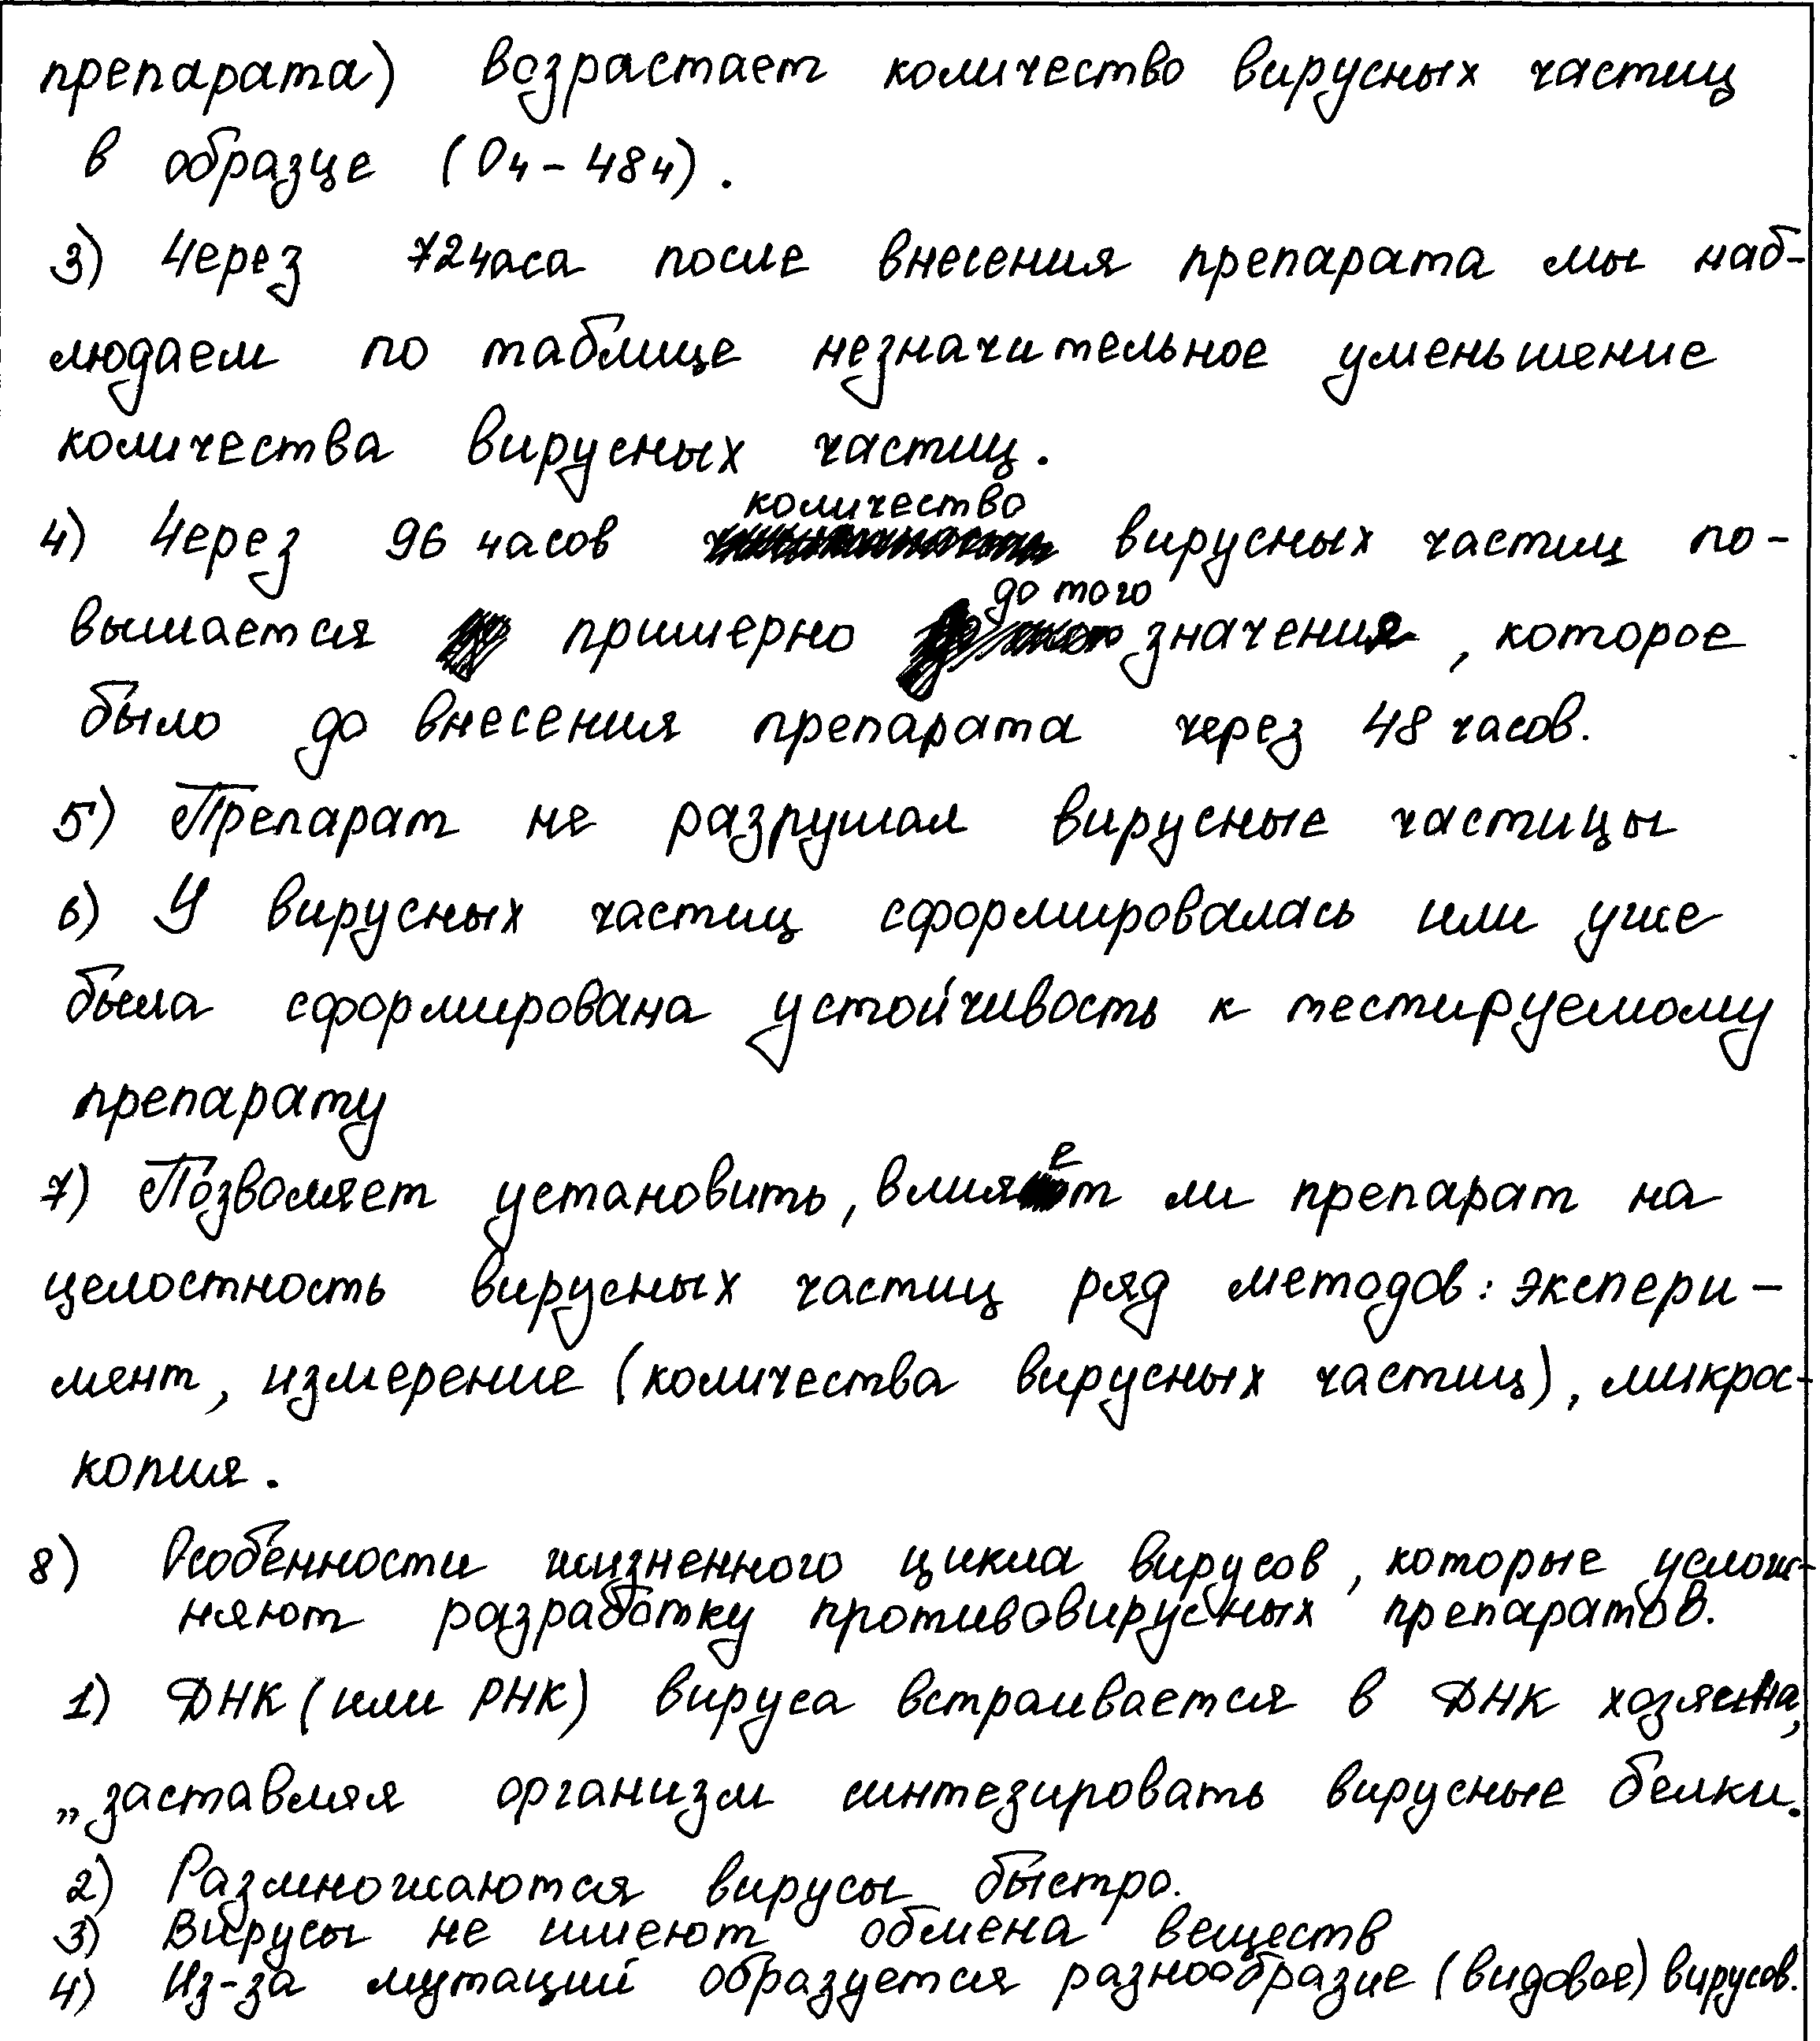 препарата) возрастает количество вирусных частиц
в образце (0ч-48ч).
3) Через 72часа после внесения препарата мы наб-
людаем по таблице незначительное уменьшение
количества вирусных частиц.
4) Через 96 часов количество вирусных частиц по-
вышается примерно до того значения, которое
было до внесения препарата через 48 часов.
5) Препарат не разрушал вирусные частицы
6) У вирусных частиц сформировалась или уже
была сформирована устойчивость к тестируемому
препарату
7) Позволяет установить, влияет ли препарат на
целостность вирусных частиц ряд методов: экспери-
мент, измерение (количества вирусных частиц), микрос-
копия.
8) Особенности жизненного цикла вирусов, которые услож-
няют разработку противовирусных препаратов.
1) ДНК (или РНК) вируса встраивается в ДНК хозяина,
„заставляя организм синтезировать вирусные белки.
2) Размножаются вирусы быстро.
3) Вирусы не имеют обмена веществ
4) Из-за мутаций образуется разнообразие (видовое) вирусов.